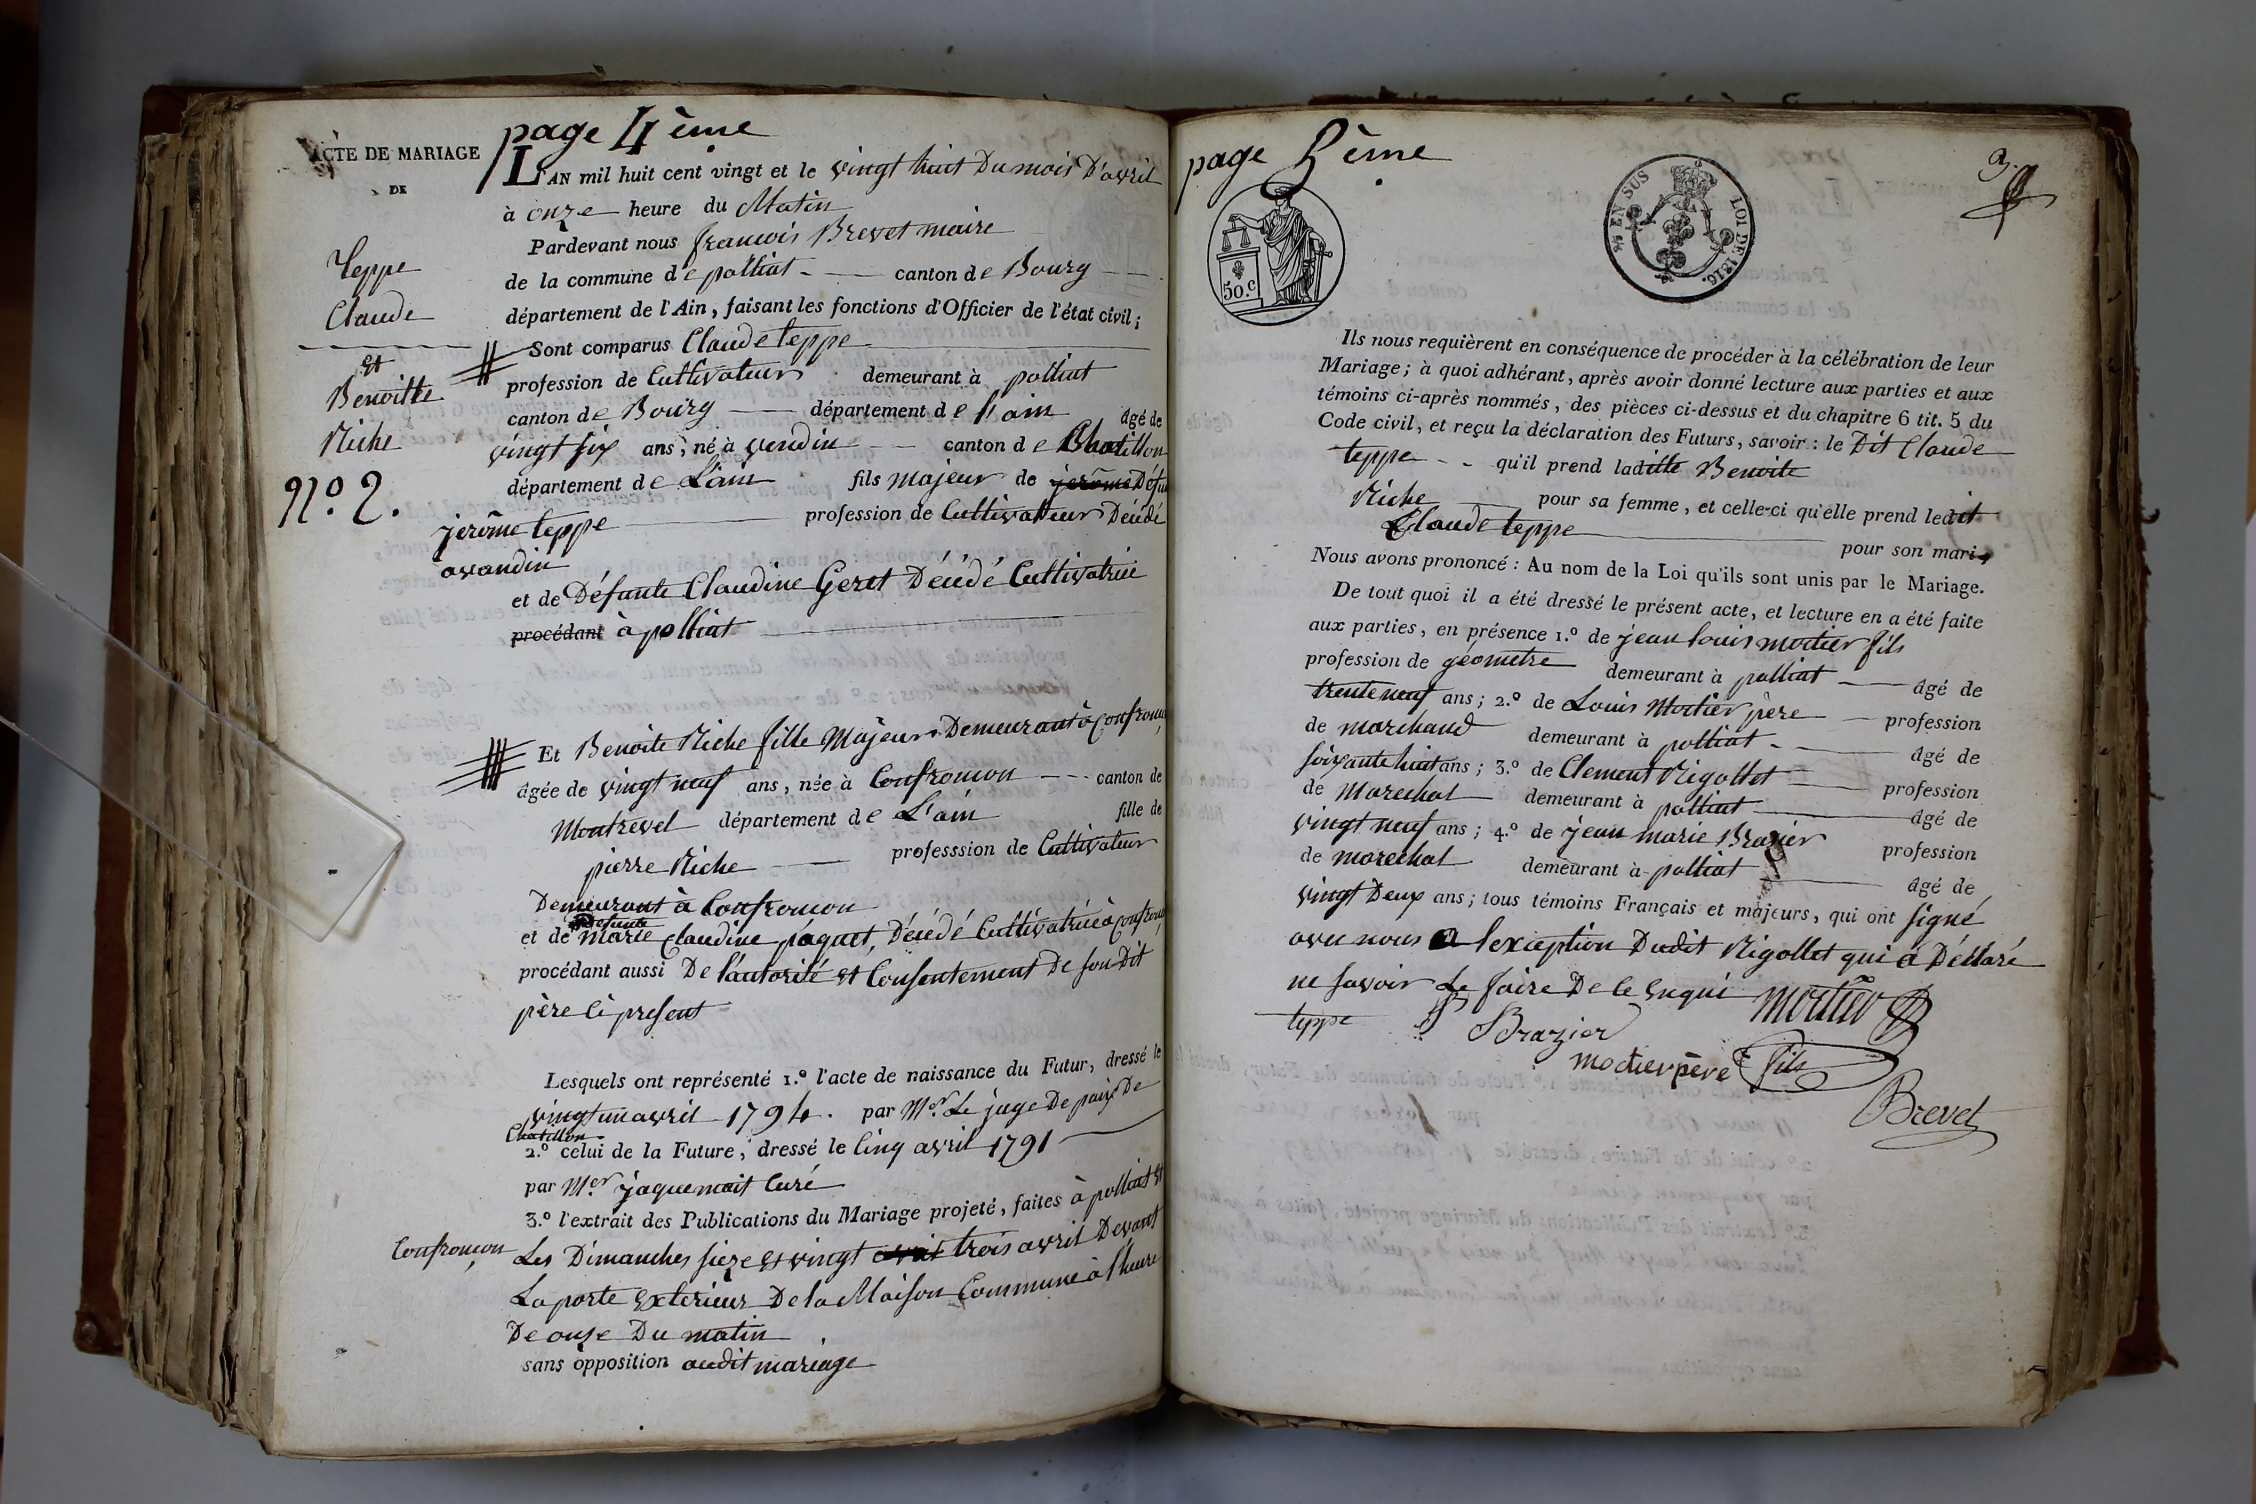 page 4ème
ACTE DE MARIAGE
DE
Teppe
Claude
et
Benoitte
Niche
N.o 2.
L'AN mil huit cent vingt et le vingt huit Du mois D'avril
à onze heure du Matin
Pardevant nous francois Brevet maire
de la commune de polliat - canton de Bourg
département de l'Ain, faisant les fonctions d'Officier de l'état civil;
Sont comparus Claude teppe
profession de Cultivateur demeurant à polliat
canton de Bourg département de l'ain âgé de
vingt six ans; né à vendin canton de Chatillon
département de L'ain fils majeur de jerôme Défu
jerôme teppe profession de Cultivatteur Décédé
avandin
et de Défunte Claudine Geret Décédé Cultivatrice
procédant à polliat
Et Benoite Niche fille Majeur Demeurant à Confroncon
âgée de vingt neuf ans, née à Confroncon canton de
Montrevel département de L'ain fille de
pierre Niche professsion de Cultivateur
Demeurant à Confroncon
Défunte
et de marie Claudine paquet, Décédé Cultivatrice à Confron
procédant aussi De l'autorité et Consentement De son Dit
père ci present
Lesquels ont représenté 1.º l'acte de naissance du Futur, dressé le
vingt un avril 1794. par Mor Le juge De paix De
Chatillon
2.º celui de la Future, dressé le Cinq avril 1791
par Mer jaquemait Curé
3.º l'extrait des Publications du Mariage projeté, faites à polliat et
Confronçon Les Dimanches sieze et vingt trois avril Devant
La porte exterieur De la Maison Commune à l'heure
De onse Du matin
sans opposition audit mariage
page 5ème
3.
50.c
EN SUS LOI DE 1816.
Ils nous requièrent en conséquence de procéder à la célébration de leur
Mariage; à quoi adhérant, après avoir donné lecture aux parties et aux
témoins ci-après nommés, des pièces ci-dessus et du chapitre 6 tit. 5 du
Code civil, et reçu la déclaration des Futurs, savoir: le Dit Claude
teppe - - qu'il prend ladiitte Benoite
Niche pour sa femme, et celle-ci qu'elle prend ledit
Claude teppe pour son mari,
Nous avons prononcé: Au nom de la Loi qu'ils sont unis par le Mariage.
De tout quoi il a été dressé le présent acte, et lecture en a été faite
aux parties, en présence 1.º de jean louis mortier fils
profession de géometre demeurant à polliat âgé de
trente neuf ans; 2.º de Louis Mortier père profession
de marchand demeurant à polliat - âgé de
soixante huit ans; 3.º de Clement Nigollet profession
de Marechal demeurant à polliat âgé de
vingt neuf ans; 4.º de jean marie Brazier profession
de marechal demeurant à polliat âgé de
vingt Deux ans; tous témoins Français et majeurs, qui ont signé
avec nous a lexception Dudit Nigollet qui a Déclaré
ne savoir Le faire De Ce Enqui mortier
teppe Brazier
mortier père fils
Brevet